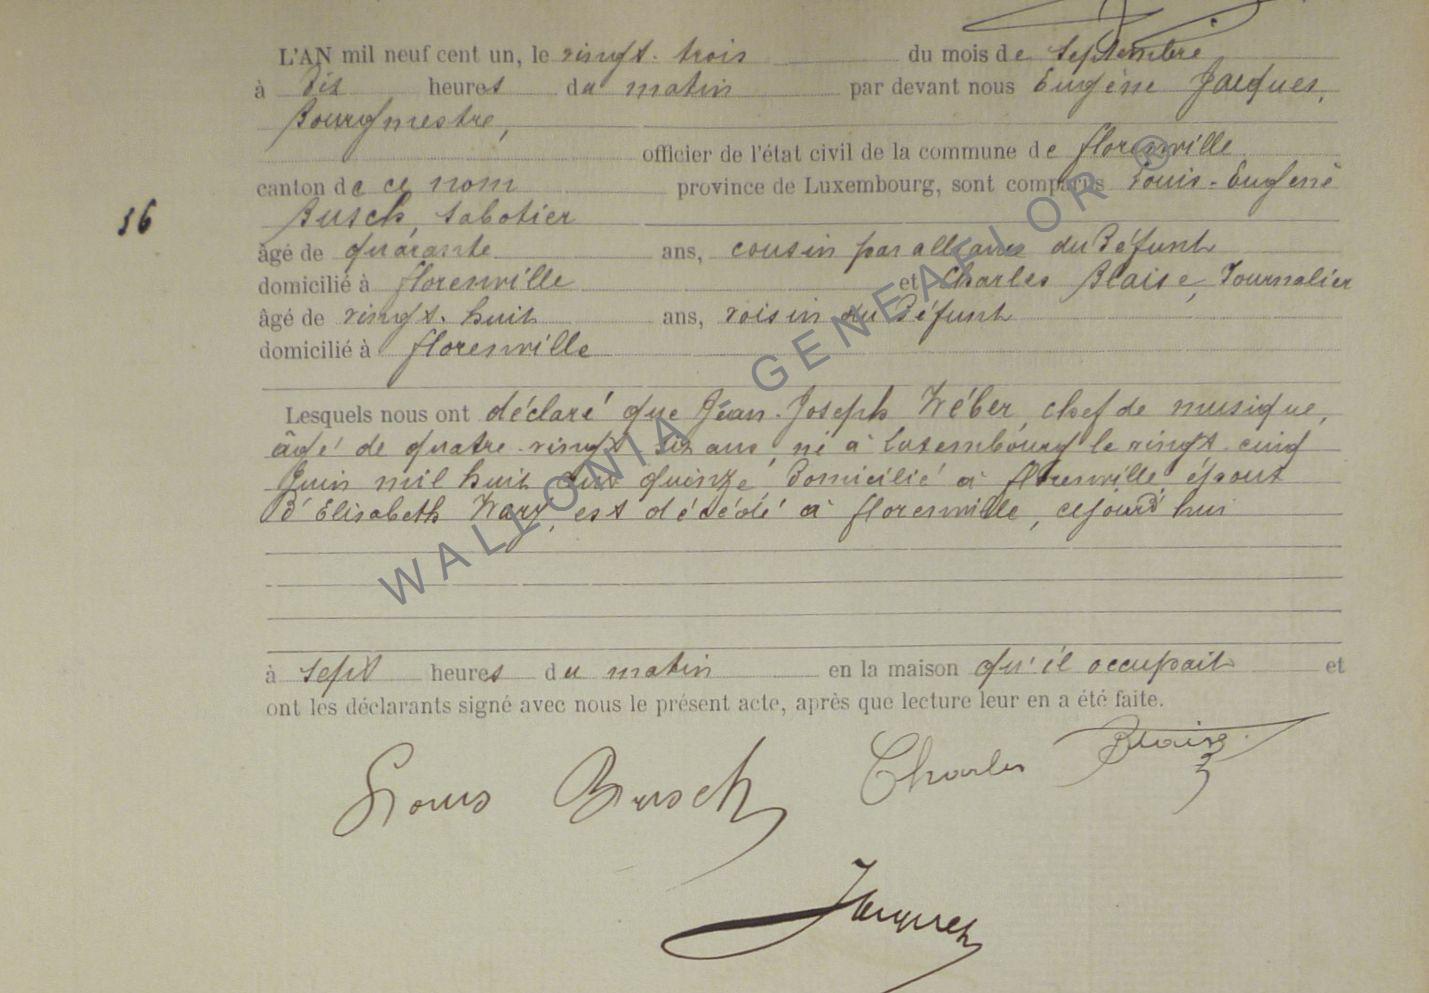 L'AN mil neuf cent un, le vingt-trois du mois de septembre
à dix heures du matin par devant nous Eugène Jacques,
Bourgmestre,
officier de l'état civil de la commune de florenville
canton de ce nom province de Luxembourg, sont comparus Louis-Eugène
Busch, sabotier
36
âgé de quarante ans, cousin par alliance du Défunt
domicilié à florenville et Charles Blaise, Journalier
âgé de vingt-huit ans, voisin du Défunt
domicilié à florenville
Lesquels nous ont déclaré que Jean-Joseph Wéber, chef de musique,
âgé de quatre-vingt six ans, né à Luxembourg le vingt-cinq
Juin mil huit cent quinze Domicilié à florenville époux
D'Elisabeth est décédé à florenville, cejourd'hui
à sept heures du matin en la maison qu'il occupait et
ont les déclarants signé avec nous le présent acte, après que lecture leur en a été faite.
Louis Busch Charles Blaise
Jacques
WALLONIA GENEAFLOR ®